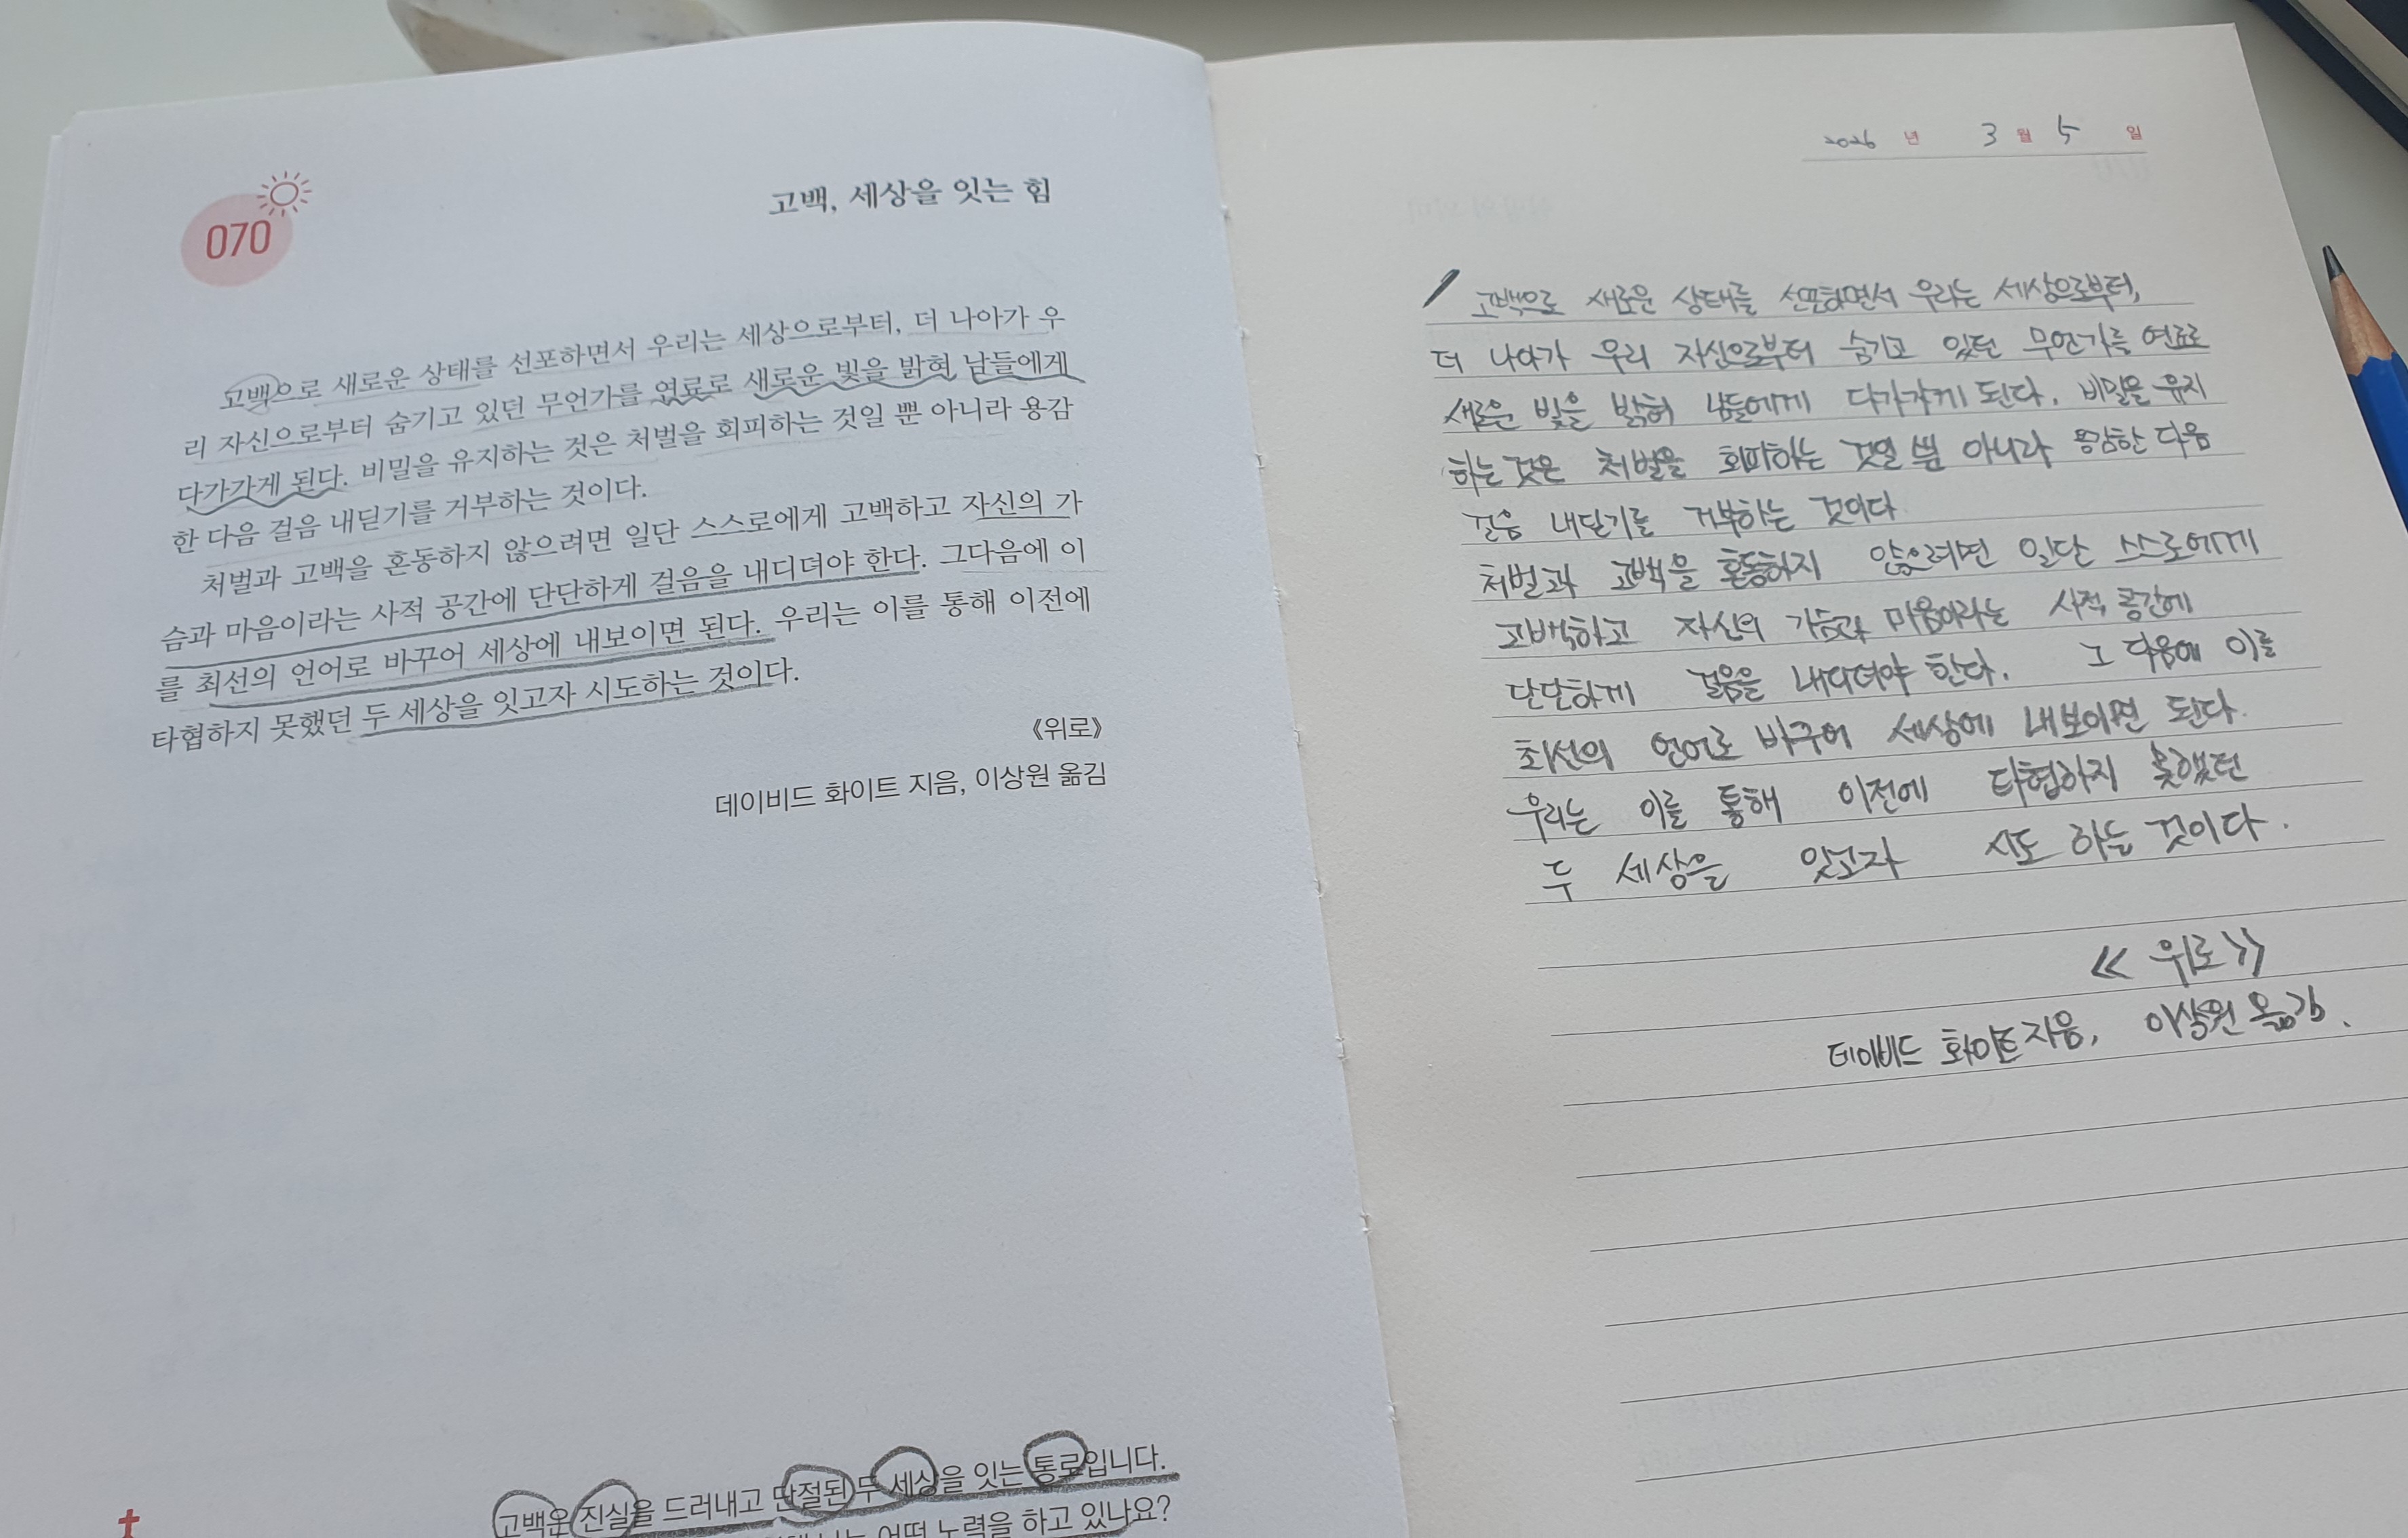 070
고백, 세상을 잇는 힘
고백으로 새로운 상태를 선포하면서 우리는 세상으로부터, 더 나아가 우
리 자신으로부터 숨기고 있던 무언가를 연료로 새로운 빛을 밝혀 남들에게
다가가게 된다. 비밀을 유지하는 것은 처벌을 회피하는 것일 뿐 아니라 용감
한 다음 걸음 내딛기를 거부하는 것이다.
처벌과 고백을 혼동하지 않으려면 일단 스스로에게 고백하고 자신의 가
슴과 마음이라는 사적 공간에 단단하게 걸음을 내디뎌야 한다. 그다음에 이
를 최선의 언어로 바꾸어 세상에 내보이면 된다. 우리는 이를 통해 이전에
타협하지 못했던 두 세상을 잇고자 시도하는 것이다.
《위로》
데이비드 화이트 지음, 이상원 옮김
고백은 진실을 드러내고 단절된 두 세상을 잇는 통로입니다.
어떤 노력을 하고 있나요?
2026 년 3 월 5 일
고백으로 새로운 상태를 선포하면서 우리는 세상으로부터,
더 나아가 우리 자신으로부터 숨기고 있던 무언가를 연료로
새로운 빛을 밝혀 남들에게 다가가게 된다. 비밀을 유지
하는 것은 처벌을 회피하는 것일 뿐 아니라 용감한 다음
걸음 내딛기를 거부하는 것이다
처벌과 고백을 혼동하지 않으려면 일단 스스로에게
고백하고 자신의 가슴과 마음이라는 사적 공간에
단단하게 걸음을 내디뎌야 한다. 그 다음에 이를
최선의 언어로 바꾸어 세상에 내보이면 된다.
우리는 이를 통해 이전에 타협하지 못했던
두 세상을 잇고자 시도 하는 것이다.
≪ 위로 ≫
데이비드 화이트 지음, 이상원 옮김.